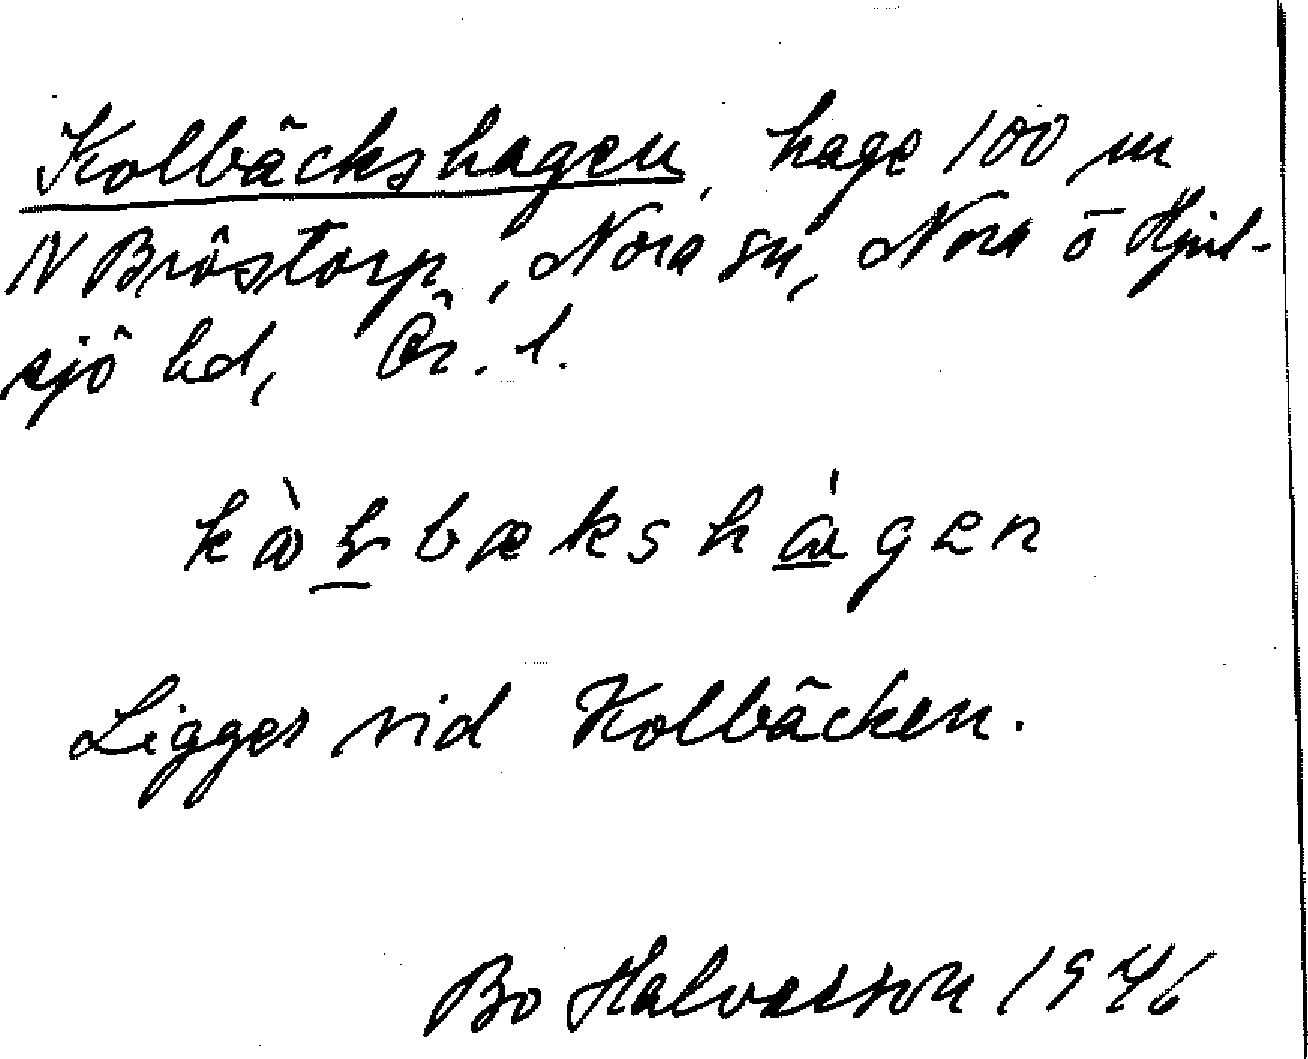 Kolbäckshagen, hage 100 m
N Bröstorp, Nora sn, Nora ö Hjul-
sjö hd, Ör. l.
Ligger vid Kolbäcken.
Bo Halvarson 1946